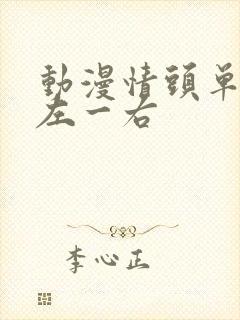 動漫情頭单
左一右
李心正